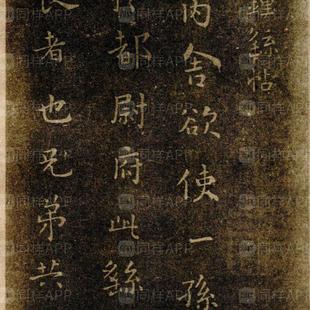 鍾繇帖
丙舍欲使一孫
都尉府此繇
良者也兄弟共
同样APP